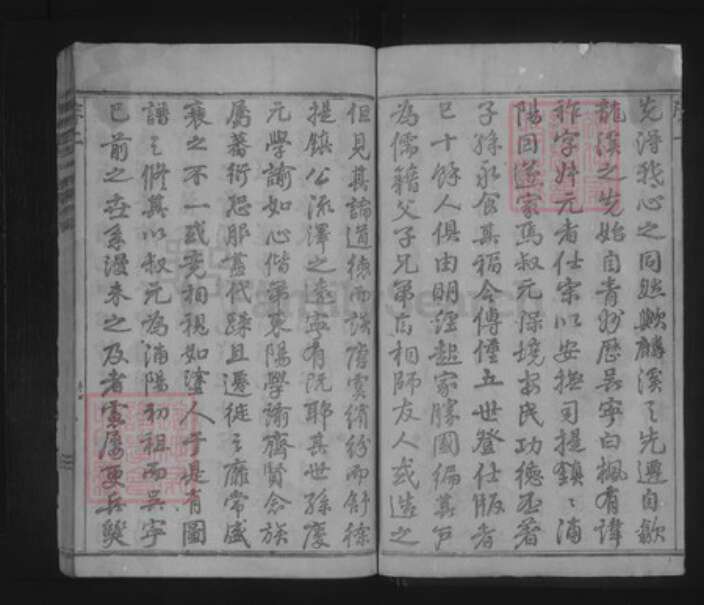 先得我心之同然歟麟溪之先遷自歙
龍溪之先始自青州歷吳寧白楓有諱
祚字叔元者仕宋以安撫司提鎮浦
陽因遂家焉叔元保境安民功德丕著
子孫永食其福今傳僅五世登仕版者
已十餘人俱由明經起家勝國編其戶
為儒籍父子兄弟自相師友人或造之
但見其論道德而談虞賓繽紛而舒徐
提鎮公流澤之遠寧有既耶其世孫慶
元學諭如心偕弟東陽學諭齊賢念族
屬蕃衍恐服盡代疎且遷徙之靡常盛
衰之不一或竟相視如塗人于是有圖
譜之修其以叔元為浦陽初祖而吳寧
已前之世系漫未之及者實屢更兵燹